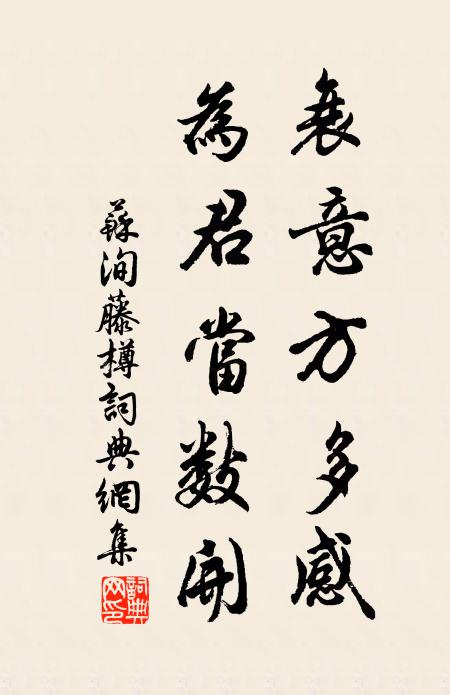 衰意方多感
為君當數開
蘇洵藤樽詞典網集
詞典網印